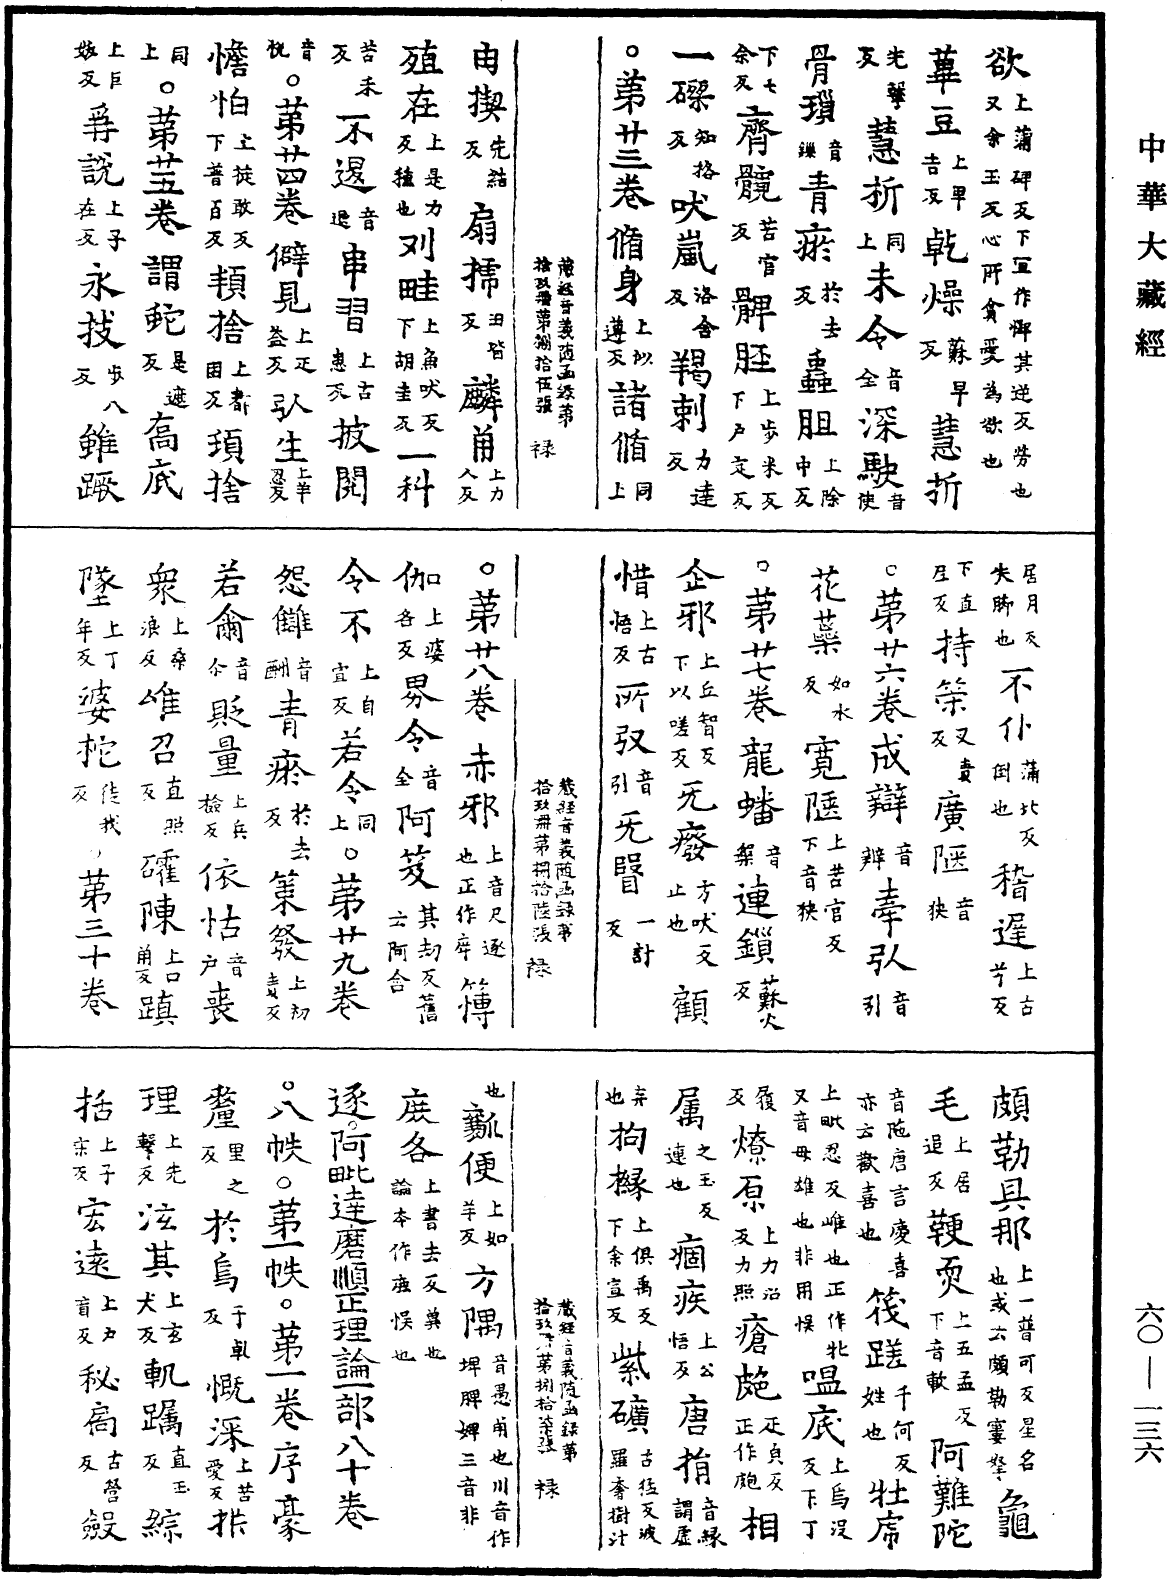 中華大藏經
六〇—一三六
欲上蒲碑反下宜作㦬其逆反勞也又余玉反心所貪愛為欲也
萆豆上畢吉反 乾燥蘇早反 慧折
先擊反 慧折同上 未令音全 深駛音使
骨瑣音鏁 青瘀於去反 蟲胆上除中反
下七余反 齊髖苦官反 髀胵上步米反下戶定反
一磔知格反 吠嵐洛含反 羯剌力達反
○第廿三卷 脩身上似遵反 諸脩同上
藏經音義隨函錄第拾玖冊第捌拾伍張 祿
由揳先結反 扇搋田皆反 麟角上力人反
殖在上是力反種也 刈畦上魚吠反下胡圭反 一科
苦禾反 不退音退 串習上古患反 披閱
音悅 ○第廿四卷 僻見上疋益反 引生上羊忍反
憺怕上徒敢反下普百反 頓捨上都困反 頊捨
同上 ○第廿五卷 謂鉈是遮反 高底
上巨姤反 尋說上子在反 永拔步八反 雖蹶
居月反失脚也 不仆蒲北反倒也 稽遲上古兮反
下直尼反 持策叉責反 廣陿音狹
○第廿六卷 成辯音辨 牽引音引
花蘂如水反 寬陿上苦官反下音狹
○第廿七卷 龍蟠音槃 連鎖蘇火反
企邪上丘智反下以嗟反 无癈方吠反止也 顧
惜上古悟反 所引音引 无瞖一計反
藏經音義隨函錄第拾玖冊第捌拾陸張 祿
○第廿八卷 赤邪上音尺逐也正作㡿 慱
伽上婆各反 界令音全 阿笈其劫反舊云阿含
令不上自宜反 若令同上 ○第廿九卷
怨讎音酬 青瘀於去反 策發上初責反
若尒音尒 貶量上兵檢反 依怙音戶 喪
眾上桑浪反 雄召直照反 礭陳上口角反 躓
墜上丁年反 婆柁徒我反 ○第三十卷
頗勒具那上一普可反星名也或云頗勒窶拏 龜
毛上居追反 鞕耎上五孟反下音軟 阿難陀
音陁唐言慶喜亦云歡喜也 筏蹉千何反姓也 牡席
上毗忍反雌也正作牝又音母雄也非用悮 嗢底上烏沒反下丁
履反 燎原上力沼反力照反 瘡皰疋皃反正作皰 相
属之玉反連也 痼疾上公悟反 唐捐音緣謂虛
弃也 拘櫞上俱禹反下余宣反 紫礦古猛反波羅奢樹汁
藏經音義隨函錄第拾玖冊第捌拾柒張 祿
也 瓤便上如羊反 方隅音愚角也川音作㙏脾婢三音非
㢈各上書去反冀也論本作㢈悮也
逐。阿毗達磨順正理論一部八十卷
○八帙。第一帙。第一卷序 豪
釐里之反 於烏于軋反 慨深上苦愛反 拼
理上先擊反 泫其上玄犬反 軌躅直玉反 綜
括上子宋反 宏遠上戶盲反 秘高古營反 㪘